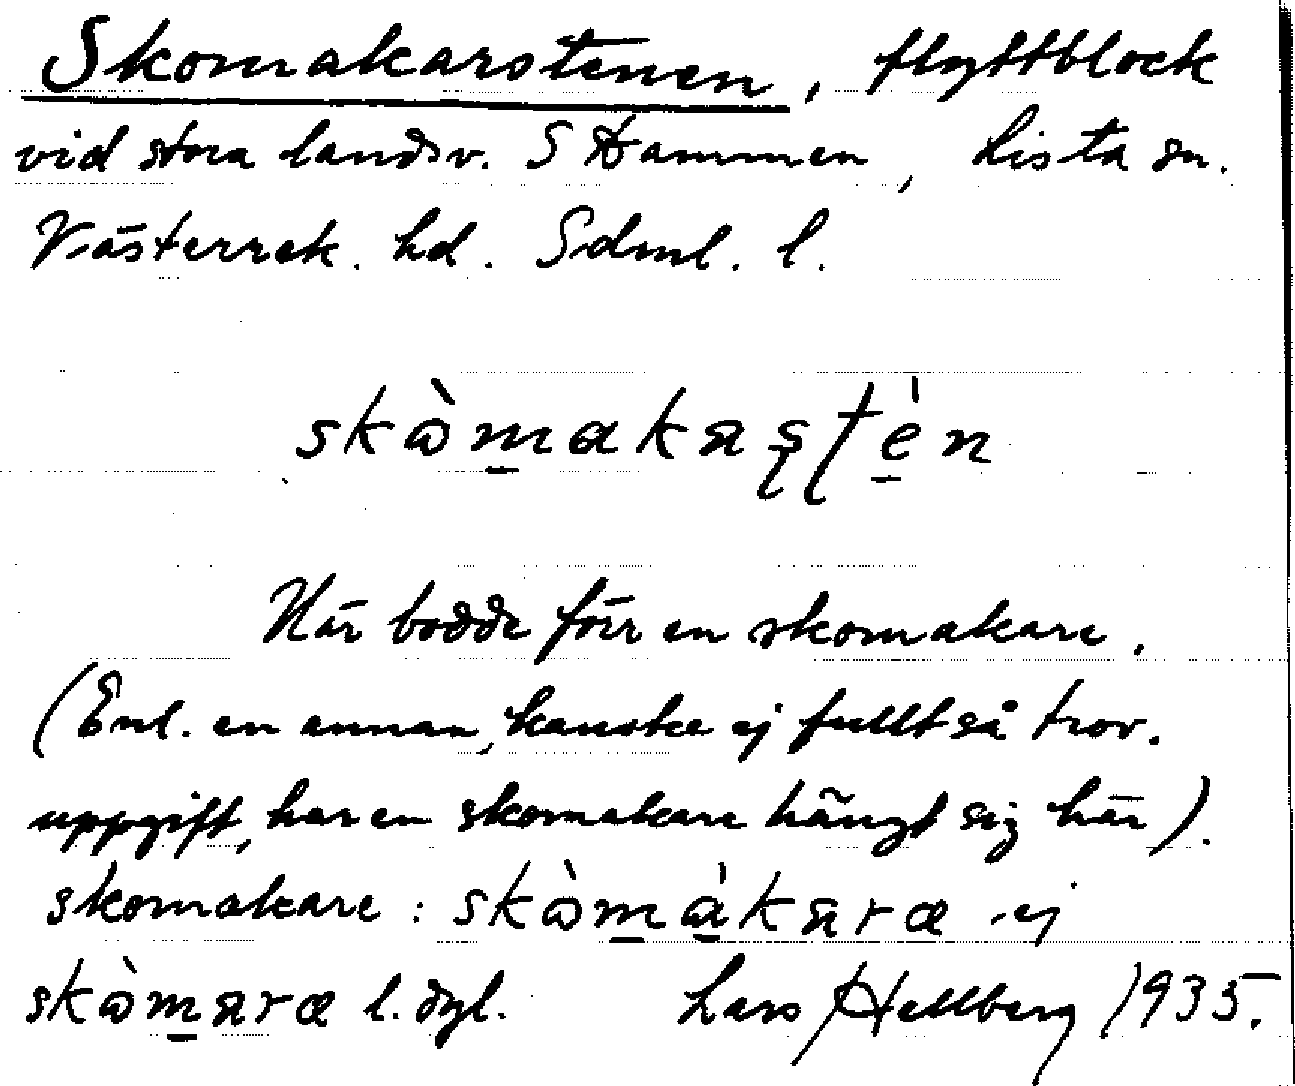 Skomakarstenen, flyttblock
vid stora landsv. S Hammen, Lista sn.
Västerrek. hd. Sdml. l.
skòmakaștèn
Här bodde förr en skomakare.
(Enl. en annan, kanske ej fullt så trov.
uppgift, har en skomakare hängt sig här).
skomakare: skòmàkaræ ej
skòmaræ l. dyl. Lars Hellberg 1935.